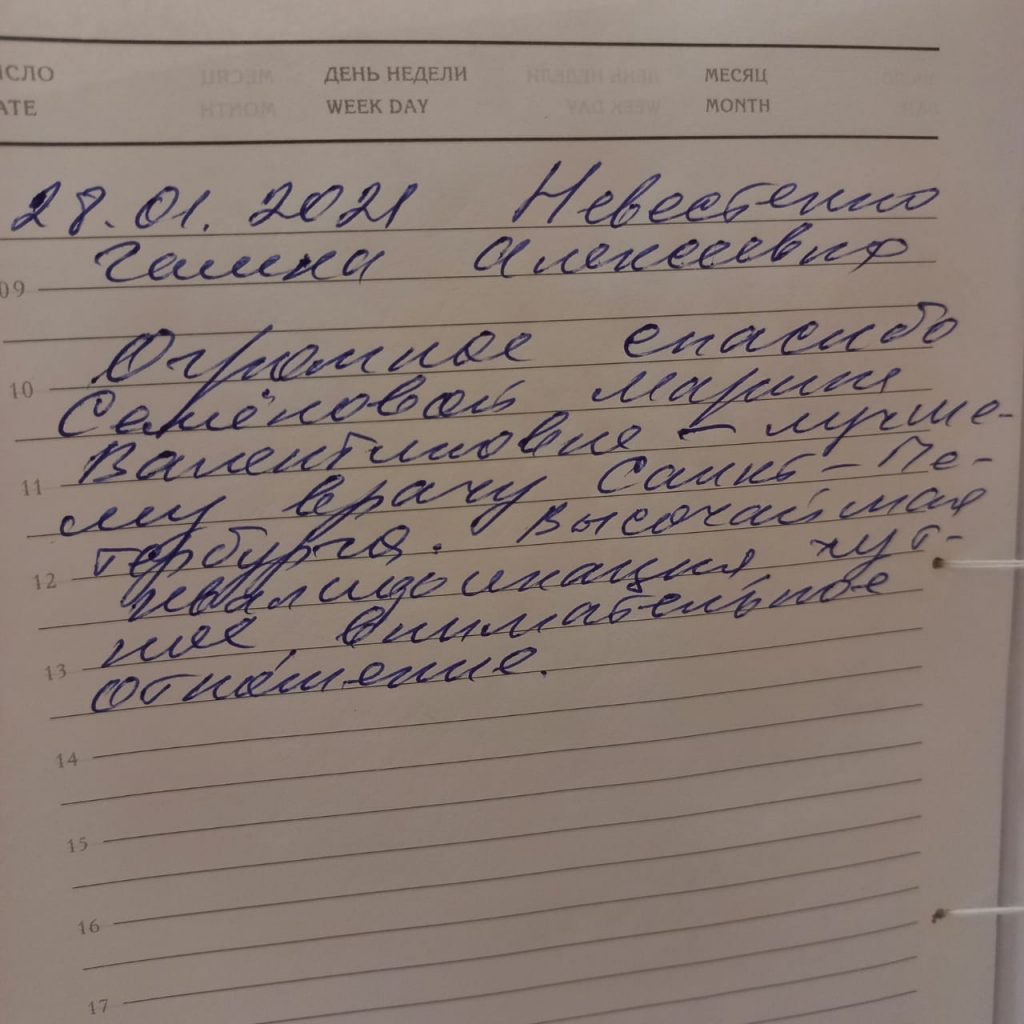 ИСЛО ДЕНЬ НЕДЕЛИ МЕСЯЦ
ATE WEEK DAY MONTH
28.01.2021 Невестенко
Галина Алексеевна
09
Огромное спасибо
10
Семёновой Марине
Валентиновне – лучше-
11
му врачу Санкт-Пе-
тербурга. Высочайшая
12
квалификация чут-
ное, внимательное
13
отношение.
14
15
16
17